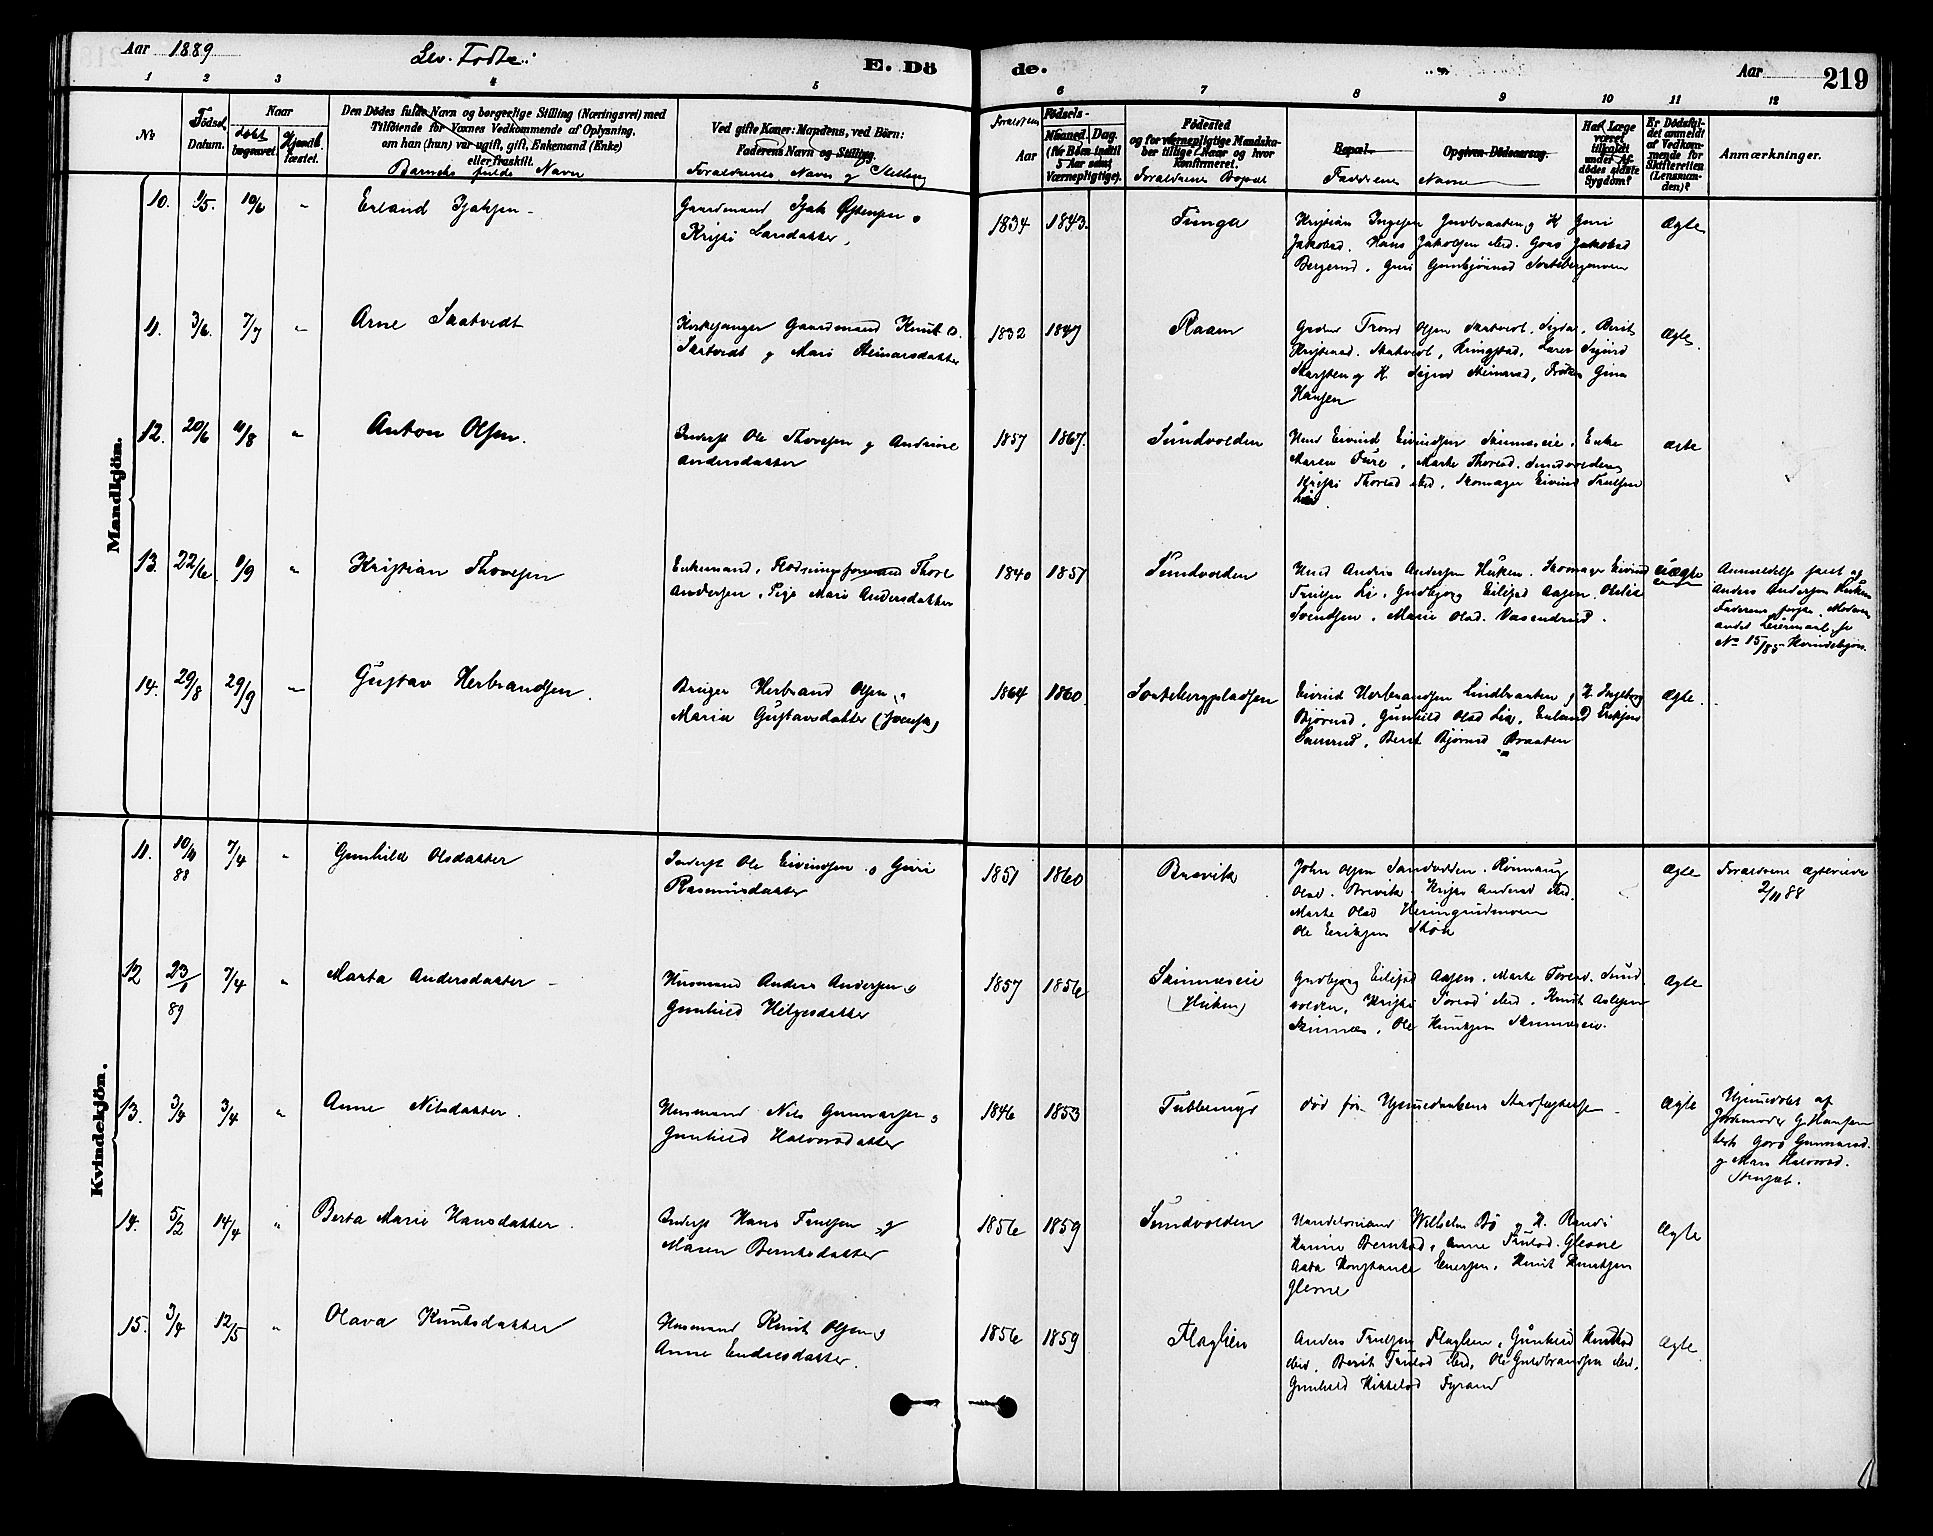 Aar 1889
Lev. Fødte
E. Dö
de.
Aar
219
1 2 3 4 5 6 7 8 9 10 11 12
No
Födsel Datum.
Naar
döbt
begravet.
Hjemd.
fæstet.
Den Dödes fulde Navn og borgerlige Stilling (Næringsvei) med
Tilföiende for Voxnes Vedkommende af Oplysning,
om han (hun) var ugift, gift, Enkemand (Enke)
eller fraskilt.
Barnets fulde Navn
Ved gifte Koner: Mandens, ved Börn:
Faderens Navn og Stilling.
Forældrenes Navn og Stilling
Forældrenes
Födsels-
Aar
Maaned.
Dag.
(for Börn indtil
5 Aar samt
Værnepligtige).
Födested
og for værnepligtige Mandskaber tillige Naar og hvor
konfirmeret.
Forældrenes Bopæl
Bopæl.
Opgiven Dödsaarsag.
Faddernes Navne
Har Læge
været
tilkaldt
under Afdödes sidste
Sygdom?
Er Dödsfaldet anmeldt
af Vedkommende for
Skifteretten
(Lensmanden)?
Anmærkninger.
Mandkjön.
10. 9/5. 10/6 " Erland
Gaardmand Østensen o
Kristi Larsdatter,
1834 1843. Tunga
Kristian Guri
Jakobsd. Hans Jakobsen ibid. Goro Jakobsd
Ægte
11. 3/6. 7/7 " Arne Skatvedt
Kirkesanger Gaardmand Knut O.
Skatvedt og Mari Steinarsdatter
1832 1847 Raaen
Trond Olsen Skatvedt, Sigdal, Berit
Skatvedt, Ringstad, Lærer Sigurd
og K. Steinarsd, Gina
Hansen
Ægte.
12. 20/6 11/8 " Anton Olsen.
Inderst Ole Thoresen og Andrine
Andersdatter
1857 1867. Sundvolden
Husm Eivind Eivindsen Skinneseie, Enke
Maren Fure, Marte Thoresd. Sundvolden,
Kristi Thoresd ibid, Skomager Eivind Truelsen
Lia
ægte
13. 22/6. 1/9 " Kristian Thoresen
Enkemand, Thore
Andersen, Pige Mari Andersdatter
1840 1851 Sundvolden
Husm Anders Andersen Huken. Skomager Eivind
Truelsen Li, Gudbjørg Eilifsd Aasen, Oleline
Svendsen, Marie Olsd. Vasendrud.
uægte
Anmeldelse
Anders Andersen Huken
Faderens første, Moderens
andet Leiermaal, se
No 15/85 Kvindekjøn.
14. 29/8 29/9 " Gustav Herbrandsen.
Bruger Herbrand Olsen o
Maria Gustavsdatter (svensk)
1864 1860. Sortebergpladsen
Eivind Herbrandsen Lindbraaten og K. Ingeborg
Bjørnsd, Gunhild Olsd Lia, Erland Eriksen
Berit Bjørnsd Braaten
Ægte.
Kvindekjön.
11. 10/11 88 7/4 " Gunhild Olsdatter
Inderst Ole Eivindsen o Guri
Rasmusdatter
1851 1860 Brevik
John Olsen Sandodden. Rønnaug
Olsd. Brevik. Kristi Andersd ibid.
Marte Olsd
Ole Eriksen
Ægte
Forældrene ægteviede
2/11 88
12 23/1 89 7/4 " Marta Andersdatter
Husmand Anders Andersen o
Gunhild Helgesdatter
1857 1856 Skinneseie
(Huken)
Gudbjørg Eilifsd Aasen. Marte Toresd. Sundvolden, Kristi Toresd ibid. Knut Aslesen
Skinnes, Ole Knutsen Skinneseie.
Ægte
13. 3/4 3/4 " Anne Nilsdatter.
Husmand Nils Gunnarsen o
Gunhild Halvorsdatter
1846 1853 Tubbemyr
død før Hjemmedaabens Stadfæstelse
Ægte
Hjemmedøbt af
Jordemoder G Hansen
Goro Gunnarsd.
og Mari Halvorsd.
14. 5/2 14/4 " Berta Marie Hansdatter.
Inderst Hans Truelsen og
Maren Berntsdatter
1856 1859 Sundvolden
Handelsmand Wilhelm Bø og K. Randi
Hanine Berntsd, Anne Truelsd. Glesne
Aasta Konstance Knut Knutsen
Glesne
Ægte
15. 3/4 12/5 " Olava Knutsdatter
Husmand Knut Olsen o
Anne Endresdatter.
1856 1859 Flaglien
Anders Truelsen Flaglien, Gunhild Knutsd
ibid, Berit Truelsd ibid, Ole Guldbrandsen ibid,
Gunhild Mikkelsd Fyrand
Ægte